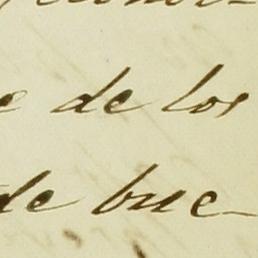 e de los
de bue-